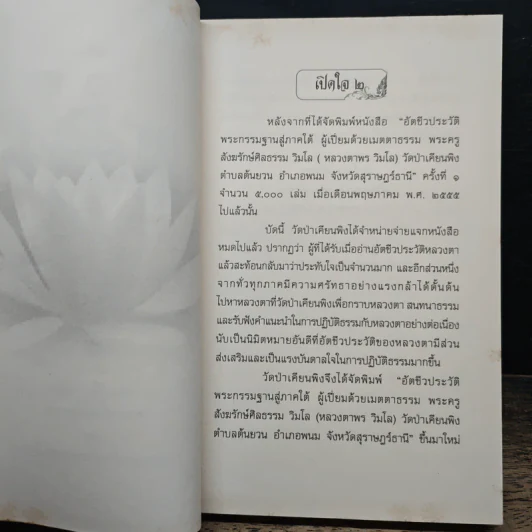 เปิดใจ ๒
หลังจากที่ได้จัดพิมพ์หนังสือ “อัตชีวประวัติ
พระกรรมฐานสู่ภาคใต้ ผู้เปี่ยมด้วยเมตตาธรรม พระครู
สังฆรักษ์ศิลธรรม วิมโล ( หลวงตาพร วิมโล) วัดป่าเคียนพิง
ตำบลต้นยวน อำเภอพนม จังหวัดสุราษฎร์ธานี” ครั้งที่ ๑
จำนวน ๕,๐๐๐ เล่ม เมื่อเดือนพฤษภาคม พ.ศ. ๒๕๕๕
ไปแล้วนั้น
บัดนี้ วัดป่าเคียนพิงได้จำหน่ายจ่ายแจกหนังสือ
หมดไปแล้ว ปรากฏว่า ผู้ที่ได้รับเมื่ออ่านอัตชีวประวัติหลวงตา
แล้วสะท้อนกลับมาว่าประทับใจเป็นจำนวนมาก และอีกส่วนหนึ่ง
จากทั่วทุกภาคมีความศรัทธาอย่างแรงกล้าได้ดั้นด้น
ไปหาหลวงตาที่วัดป่าเคียนพิงเพื่อกราบหลวงตา สนทนาธรรม
และรับฟังคำแนะนำในการปฏิบัติธรรมกับหลวงตาอย่างต่อเนื่อง
นับเป็นนิมิตหมายอันดีที่อัตชีวประวัติของหลวงตามีส่วน
ส่งเสริมและเป็นแรงบันดาลใจในการปฏิบัติธรรมมากขึ้น
วัดป่าเคียนพิงจึงได้จัดพิมพ์ “อัตชีวประวัติ
พระกรรมฐานสู่ภาคใต้ ผู้เปี่ยมด้วยเมตตาธรรม พระครู
สังฆรักษ์ศิลธรรม วิมโล (หลวงตาพร วิมโล) วัดป่าเคียนพิง
ตำบลต้นยวน อำเภอพนม จังหวัดสุราษฎร์ธานี” ขึ้นมาใหม่